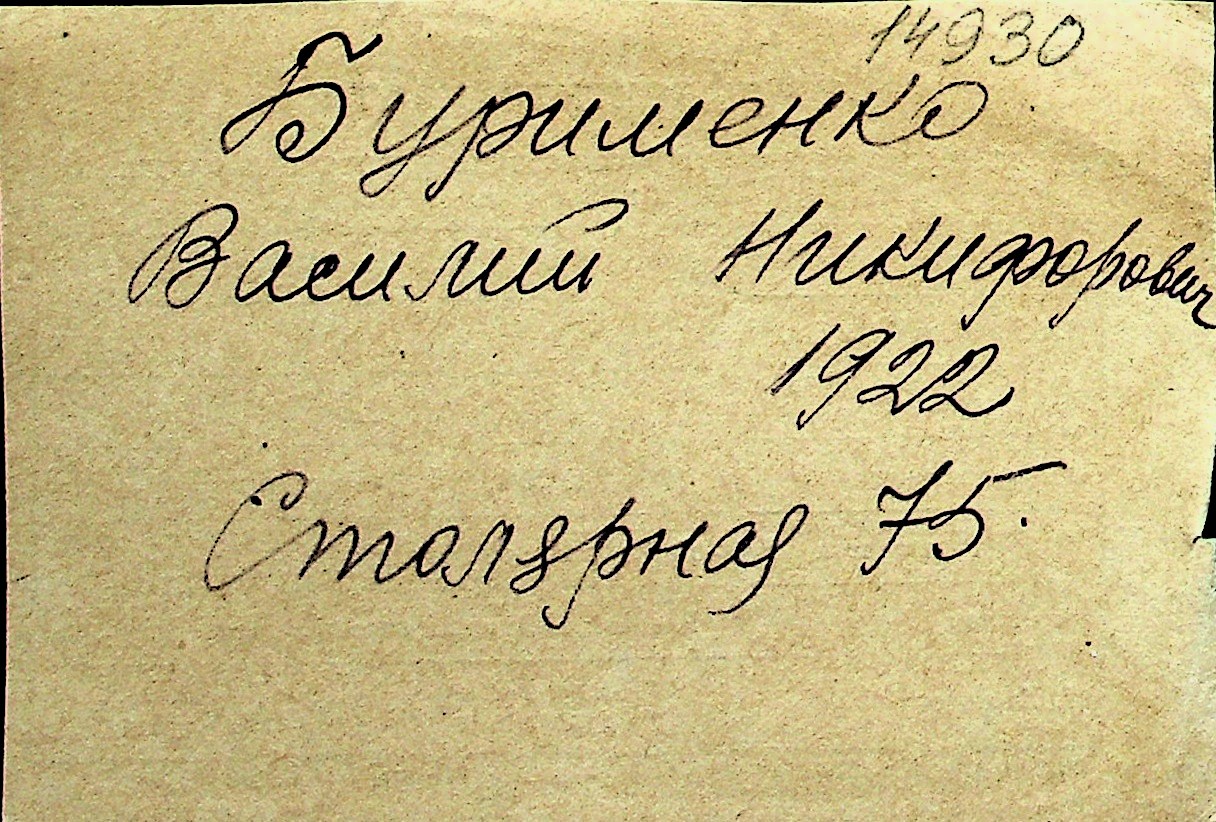 14930
Бурименко
Василий Никифорович
1922
Столярная 75.